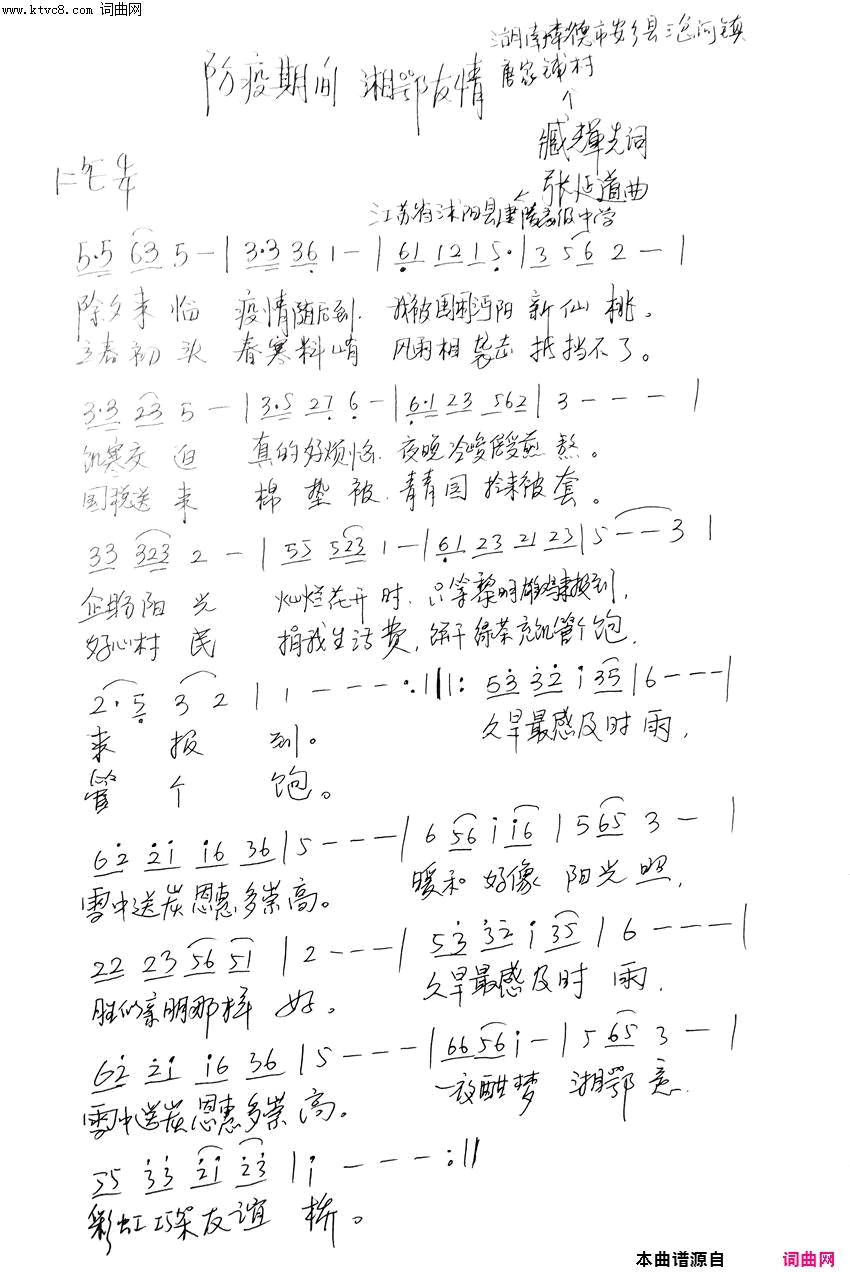 www.ktvc8.com 词曲网
湖南常德市安乡县 河镇
防疫期间 湘鄂友情 唐家铺村
↑
臧辉先词
张延道曲
江苏省沭阳县建陵高级中学
5·5 63 5 - | 3·3 36 1 - | 61 12 15· | 3 56 2 - |
除夕来临 疫情随后到. 我被围困沔阳新仙桃。
立春初头 春寒料峭 风雨相袭击抵挡不了。
3·3 23 5 - | 3·5 27 6 - | 6·1 23 562 | 3 - - - |
饥寒交迫 真的好烦恼. 夜晚冷 受煎熬。
国 送来 棉垫被. 青青国 被套。
33 323 2 - | 55 523 1 - | 61 23 21 23 | 5 - - 3 |
企盼阳光 灿烂花开时. 只等黎明雄鸡来报到,
好心村民 捐我生活费, 饼干绿茶充饥管个饱,
2·5 3 2 | 1 - - - :||: 53 32 1 35 | 6 - - - |
来报到。 久旱最感及时雨,
管个饱。
62 21 16 36 | 5 - - - | 6 56 1 16 | 5 65 3 - |
雪中送炭恩惠多崇高。 暖和好像阳光照,
22 23 56 51 | 2 - - - | 53 32 1 35 | 6 - - - |
胜似亲朋那样好。 久旱最感及时雨,
62 21 16 36 | 5 - - - | 66 56 1 - | 5 65 3 - |
雪中送炭恩惠多崇高。 一夜酣梦 湘鄂意.
55 33 21 23 | 1 - - - :||
彩虹巧架友谊桥。
本曲谱源自 词曲网